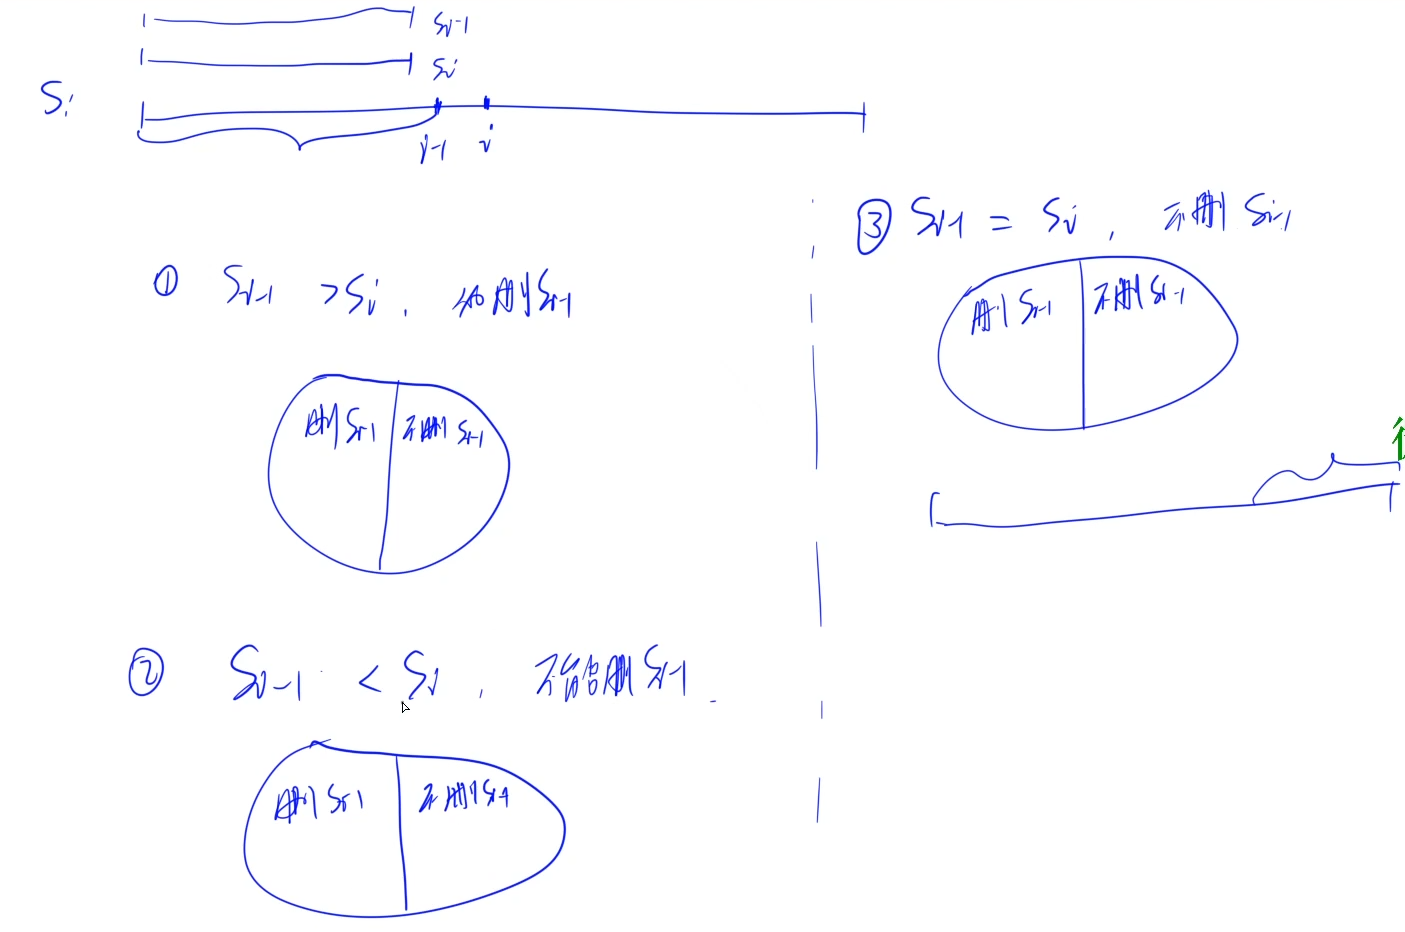 S_{i-1}
S_i
S_i
i-1 i
① S_{i-1} > S_i , 必删 S_{i-1}
删 S_{i-1} 不删 S_{i-1}
② S_{i-1} < S_i , 不能删 S_{i-1}
删 S_{i-1} 不删 S_{i-1}
③ S_{i-1} = S_i , 不删 S_{i-1}
删 S_{i-1} 不删 S_{i-1}